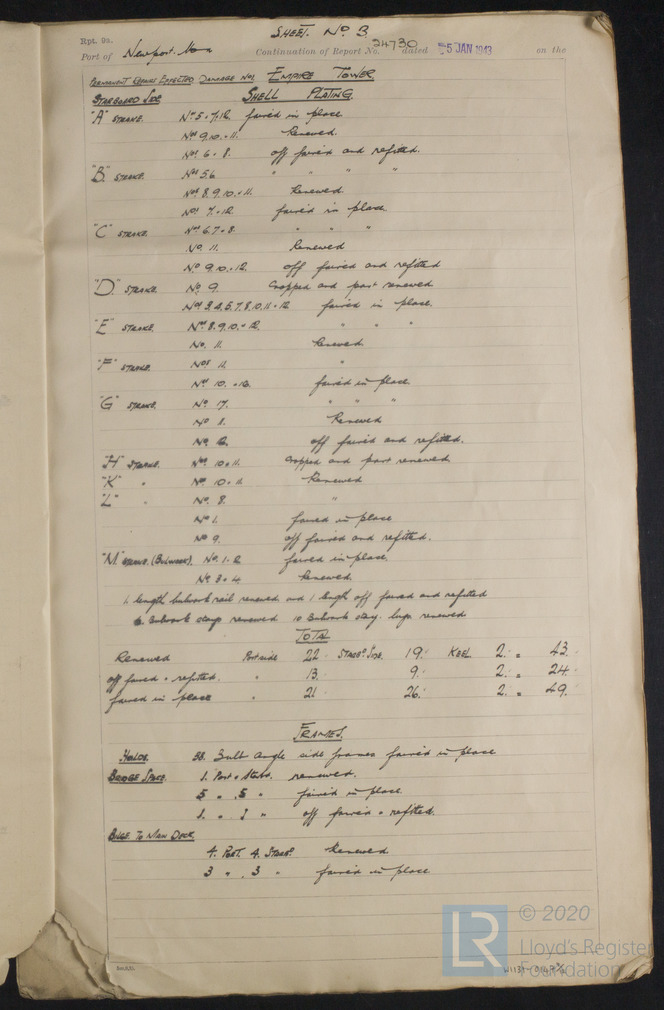 SHEET. No 3.
Rpt. 9a.
Port of Newport. Mon Continuation of Report No. 24730 dated 5 JAN 1943 on the
PERMANENT REPAIRS EFFECTED DAMAGE No1 EMPIRE TOWER.
STARBOARD SIDE SHELL PLATING.
"A" STRAKE. Nos 5.7.12. faired in place.
Nos 9.10.+11. Renewed.
Nos. 6+8. off faired and refitted.
"B" STRAKE. Nos 5.6 " " " "
Nos 8.9.10.+11. Renewed.
Nos 7.+12. faired in place.
"C" STRAKE. Nos 6.7+8. " " "
No. 11. Renewed
No 9.10.+12. off faired and refitted
"D" STRAKE. No 9. Cropped and part renewed.
Nos 3.4.5.7.8.10.11+12 faired in place.
"E" STRAKE. Nos 8.9.10.+12. " " "
No. 11. Renewed.
"F" STRAKE. Nos 11. "
Nos 10.+12. faired in place.
"G" STRAKE. No 17. " " "
No 8. Renewed
No 16. off faired and refitted.
"H" STRAKE. Nos 10+11. Cropped and part renewed.
"K" " No. 10+11. Renewed
"L" " No. 8. "
No 1. faired in place
No 9. off faired and refitted.
"M" STRAKE. (BULWARK). No. 1.2 faired in place.
No 3+4. Renewed.
1. length bulwark rail renewed and 1 length off faired and refitted
6. Bulwark stays renewed 10 Bulwark stay lugs renewed
TOTAL
Renewed Port side 22 STARBD SIDE. 19. KEEL 2. = 43.
off faired + refitted. " 13. 9. 2. = 24.
faired in place " 21 26. 2. = 49.
FRAMES.
HOLDS. 38. Bulb angle side frames faired in place
BRIDGE SPACE. 1. Port + Starb. renewed.
5 " 5 " faired in place.
1. " 1 " off faired + refitted.
BILGE TO MAIN DECK
4. PORT. 4. STARBD Renewed
3 " 3 " faired in place
© 2020
LR
Lloyd's Register
Foundation